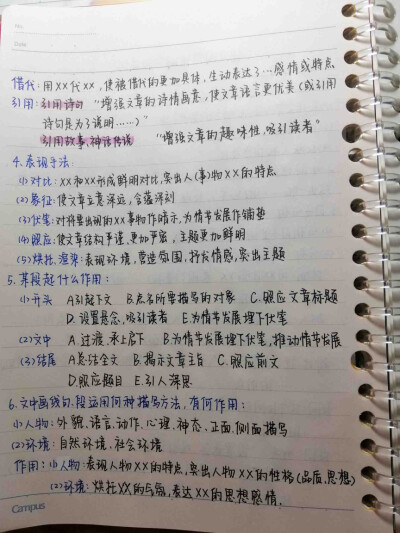 No.
Date
借代:用XX代XX,使被借代的更加具体,生动表达了…感情或特点
引用:引用诗句 "增强文章的诗情画意,使文章语言更优美(或引用
诗句是为了说明……)"
引用故事,神话传说 "增强文章的趣味性,吸引读者"
4.表现手法:
(1)对比:XX和XX形成鲜明对比,突出人(事)物XX的特点
(2)象征:使文章立意深远,含蓄深刻
(3)伏笔:对将要出现的XX事物作暗示,为情节发展作铺垫
(4)照应:使文章结构严谨,更加严密,主题更加鲜明
(5)烘托、渲染:表现环境,营造氛围,抒发情感,突出主题
5.某段起什么作用:
(1)开头 A引起下文 B.点名所要描写的对象 C.照应文章标题
D.设置悬念,吸引读者 E.为情节发展埋下伏笔
(2)文中 A过渡,承上启下 B.为情节发展埋下伏笔,推动情节发展
(3)结尾 A总结全文 B.揭示文章主旨 C.照应前文
D照应题目 E.引人深思
6.文中画线句,段运用何种描写方法,有何作用:
(1)人物:外貌、语言、动作、心理、神态、正面、侧面描写
(2)环境:自然环境、社会环境
作用:(1)人物:表现人物XX的特点,突出人物XX的性格(品质、思想)
(2)环境:烘托XX的气氛,表达XX的思想感情.
Campus